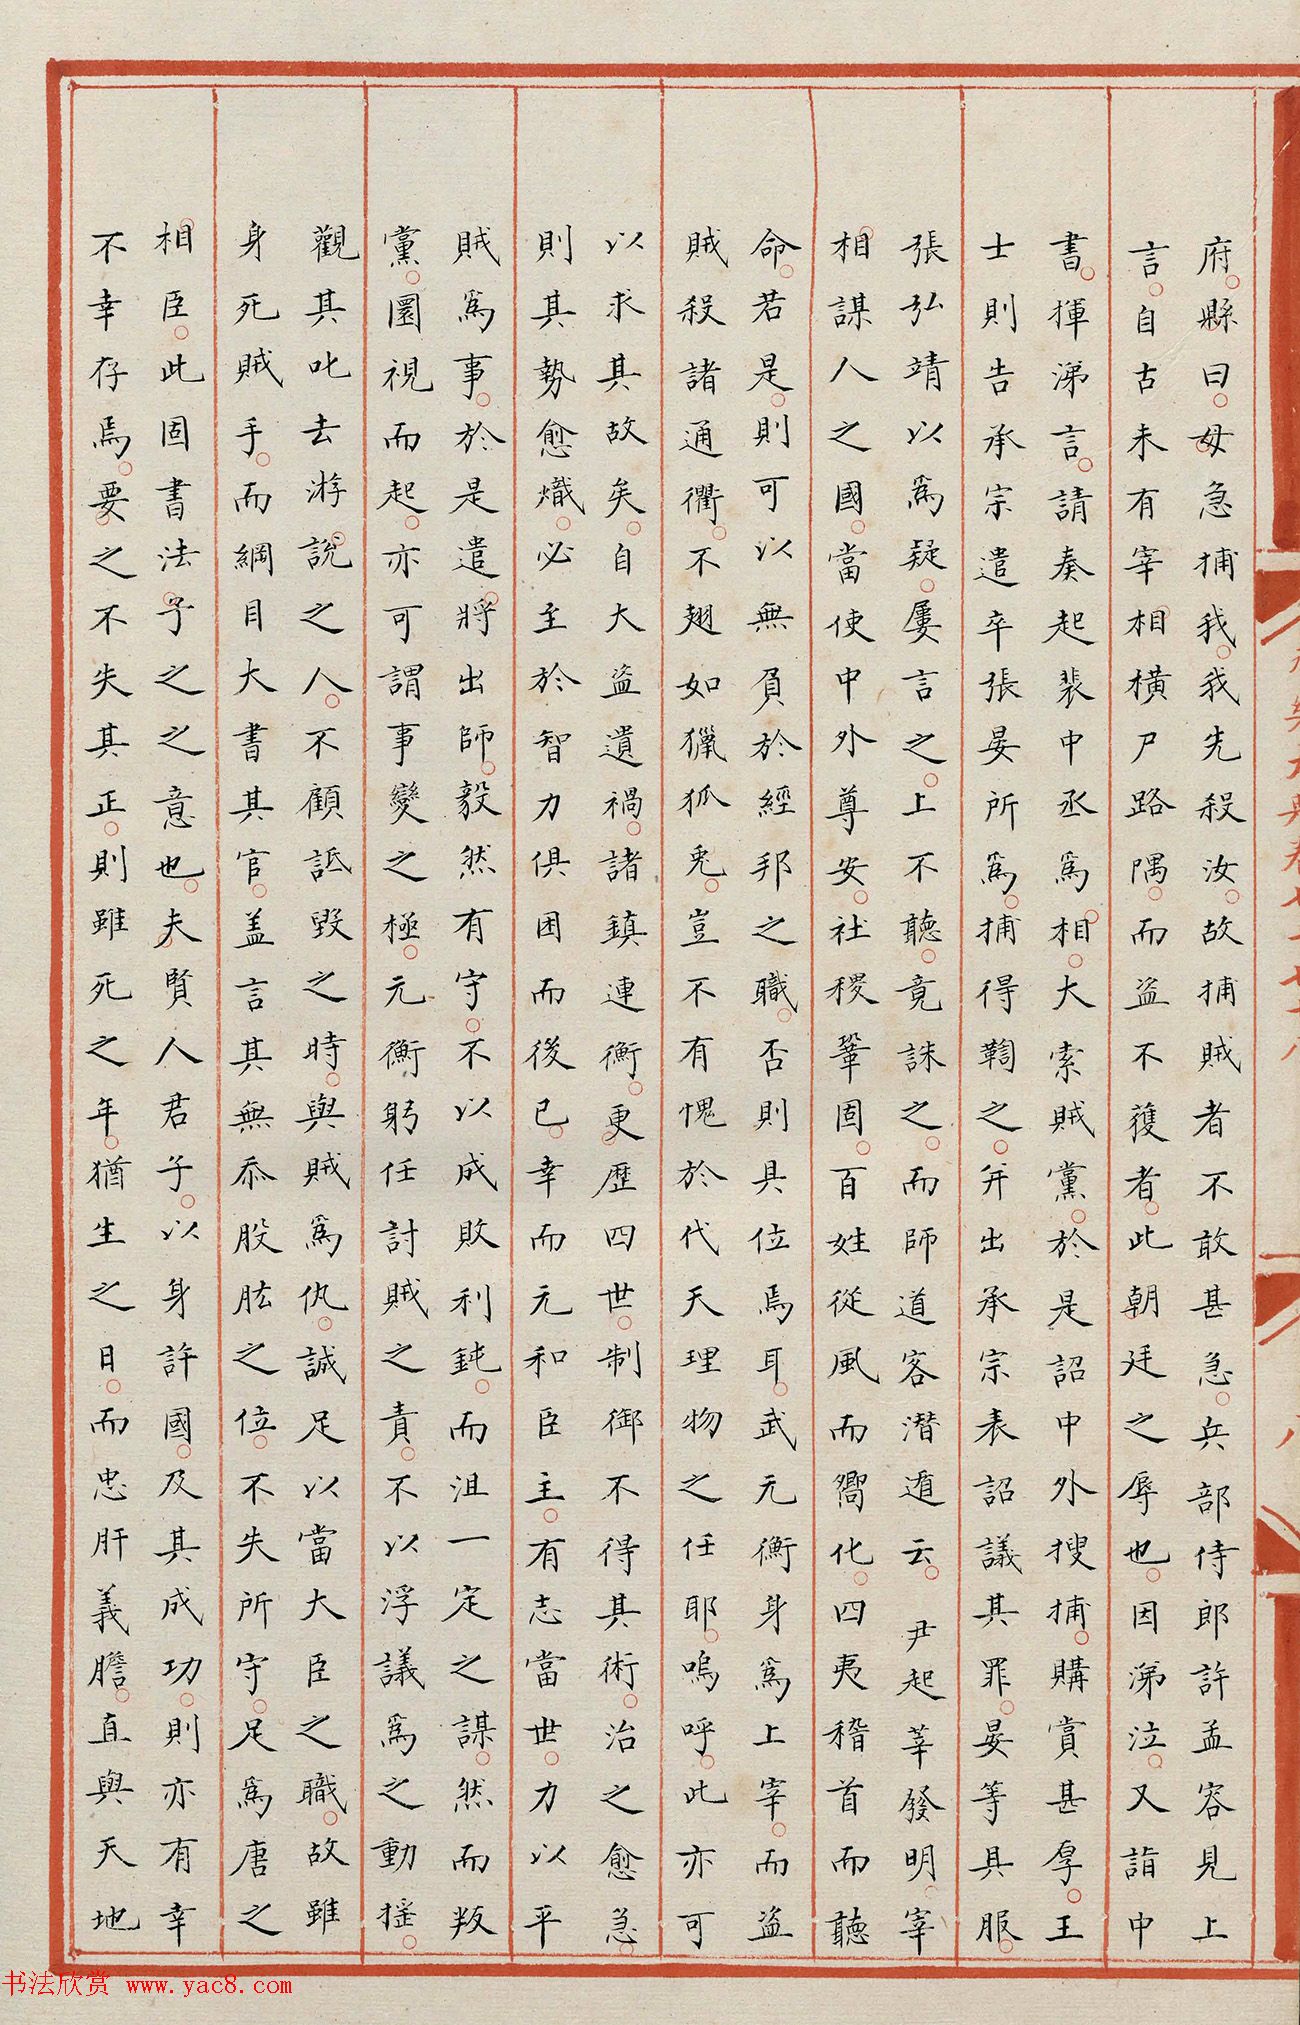 府縣曰毋急捕我我先殺汝故捕賊者不敢甚急兵部侍郎許孟容見上
言自古未有宰相橫尸路隅而盗不獲者此朝廷之辱也因涕泣又詣中
書揮涕言請奏起裴中丞爲相大索賊黨於是詔中外搜捕購賞甚厚王
士則告承宗遣卒張晏所爲捕得鞫之并出承宗表詔議其罪晏等具服
張弘靖以爲疑屢言之上不聽竟誅之而師道客潛遁云 尹起莘發明宰
相謀人之國當使中外尊安社稷鞏固百姓從風而嚮化四夷稽首而聽
命若是則可以無負於經邦之職否則具位焉耳武元衡身爲上宰而盗
賊殺諸通衢不翅如獵狐兎豈不有愧於代天理物之任耶嗚呼此亦可
以求其故矣自大盗遺禍諸鎮連衡更歷四世制御不得其術治之愈急
則其勢愈熾必至於智力俱困而後已幸而元和臣主有志當世力以平
賊爲事於是遣將出師毅然有守不以成敗利鈍而沮一定之謀然而叛
黨圜視而起亦可謂事變之極元衡躬任討賊之責不以浮議爲之動搖
觀其叱去游說之人不顧詆毀之時與賊爲仇誠足以當大臣之職故雖
身死賊手而綱目大書其官盖言其無忝股肱之位不失所守足爲唐之
相臣此固書法予之之意也夫賢人君子以身許國及其成功則亦有幸
不幸存焉要之不失其正則雖死之年猶生之日而忠肝義膽直與天地
书法欣赏 www.yac8.com